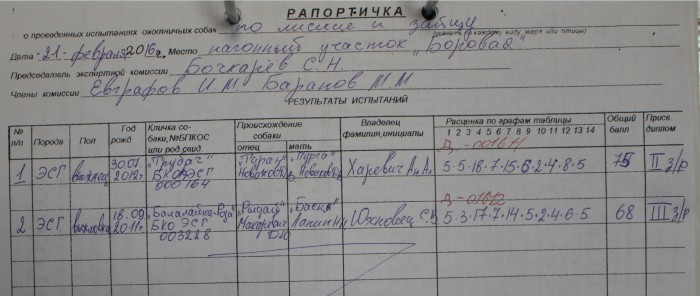 РАПОРТИЧКА
о проведенных испытаниях охотничьих собак по лисице и зайцу
(указать по какому виду зверя или птицы)
Дата 21. февраля 2016г. Место нагонный участок "Боровая"
Председатель экспертной комиссии Бочкарёв С.Н.
Члены комиссии Евграфов И.М. Баранов М.М.
РЕЗУЛЬТАТЫ ИСПЫТАНИЙ
№ п/п Порода Пол Год рожд Кличка собаки, № ВПКОС или род.свид. Происхождение собаки отец мать Владелец фамилия, инициалы Расценка по графам таблицы 1 2 3 4 5 6 7 8 9 10 11 12 13 14 Общий балл Присв. диплом
1 ЭСГ 30.01. 2012г. "Трубач" БКО ЭСГ 000764 Харевич А.А. 5·5·18·7·15·6·2·4·8·5 75 II з/р
2 ЭСГ выжловка 18.09. 2011г. "Балалайка-Роза" БКО ЭСГ 003228 "Рыдай" Макаревич "Баска" Лапин Южновец С.В. 5·3·17·7·14·5·2·4·6·5 68 III з/р